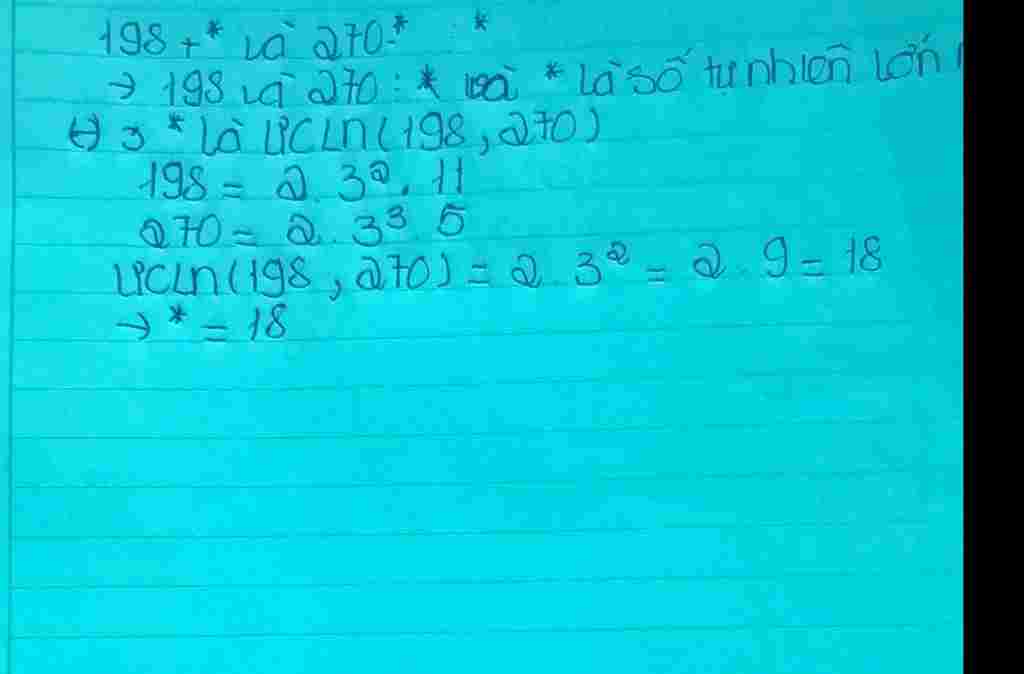 198 + * và 270 : * *
→ 198 và 270 : * và * là số tự nhiên lớn
↔ 3 * là ƯCLN(198, 270)
198 = 2. 3². 11
270 = 2. 3³ 5
ƯCLN(198, 270) = 2. 3² = 2. 9 = 18
→ * = 18